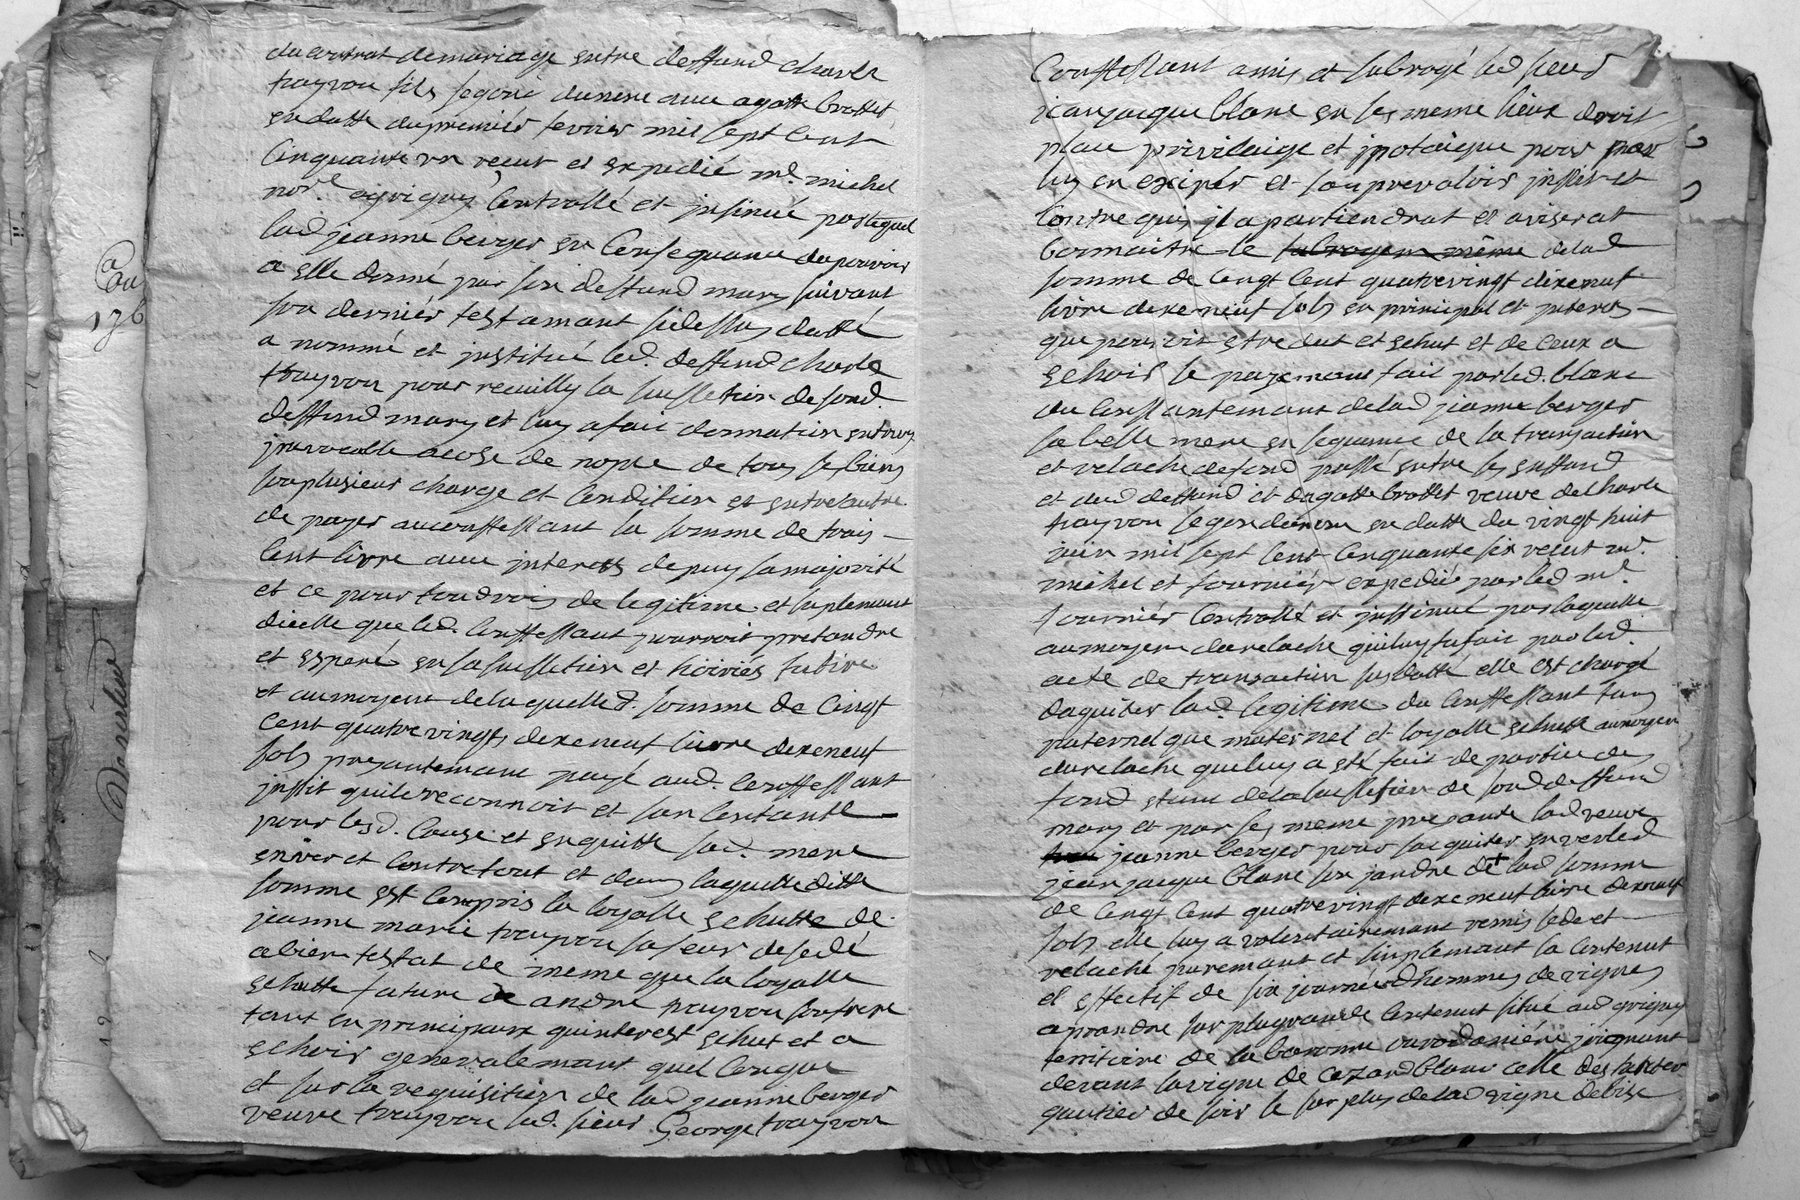 du contrat de mariage entre deffund charle
trayvou fils segond dunene avec agatte brottet
en datte du premier fevrier mil sept cent
cinquante un receut et expedié me. michel
nore. agrigny controllé et insinué par lequel
lad jeanne berger en consequance du pouvoir
a elle donné par son deffund mary suivant
son dernier testamant sidessus datté
a nommé et justitué led. deffund charle
trayvou pour recuilly la sucsetion de sond.
deffund mary et luy a fait donnation entrevifs
jrrevocable acose de nopce de tous ses biens
sou plusieur charge et condition et entre autre
de payer au conffessant la somme de trois
cent livre avec interests depuy sa majorité
et ce pour tou drois de legitime et suplemant
dicelle que led. conffessant pourroit pretandre
et esperé en sa sucsetion et hoiries future
et au moyent de laquelle d. somme de cinqt
cent quatre vingts dixeneuf livre dixeneuf
sols presantemant payé aud. conffessant
jnssit quil reconnoit et san contante
pour lesd. cause et en quitte sad. mere
enver et contre tout et dans laquelle ditte
somme est compris la loyalle echutte de
jeanne marie trayvou sa seur desedé
abien testat de meme que la loyalle
echutte future de andré trayvou son frere
tant en principaux quinterest echut et a
echoir generalemant quel conque
et sur la requisition de lad jeanne berger
veuve trayvou led. sieur George trayvou
Conffessant a mis et subrogé led sieur
jean jacque blanc en ses meme lieux droit
place privilaige et jpotaique pour par
luy en exiper et sou prevaloir jnssit et
contre quy jl apartiendrat et aviserat
bormaitre le subrogeon même de lad
somme de cinqt cent quatrevingt dixeneuf
livre dixeneuf sols en principal et jnterest
que pouvoit etre dut et echut et de ceux a
echoir le payemant fait par led. blanc
du consantemant de lad jeanne berger
sa belle mere en sequance de la transaction
et relache de fond passé entre les enffand
et dud deffund et dagatte brottet veuve de charle
trayvou segon dunom en datte du vingt huit
juin mil sept cent cinquante six receut me.
michel et fournier expedié par led me.
fournier controllé et jnssinué par laquelle
au moyen du relache quil luy fu fait par led.
acte de transaction susdatté elle est chargé
daquiter lad. legitime du conffessant tans
paternel que maternel et loyalle echutte au moyen
du relache que luy a eté fait de partie des
fond et une de la sucsetion de sond deffund
mary et par ses meme presante lad veuve
jeanne berger pour saquiter enver led
jean jacque blanc son jandre de lad somme
de cinqt cent quatrevingt dixeneuf livre dixneuf
sols elle luy a volontairemant remis sede et
relaché puremant et simplemant la contenut
et effectif de six journée dhommes de vignes
aprandre sur plus grande contenut situé aud grigny
territoire de la baronne joignant
devant la vigne de cazard blanc celle des
gautier de soir le surplus de lad vigne de bise